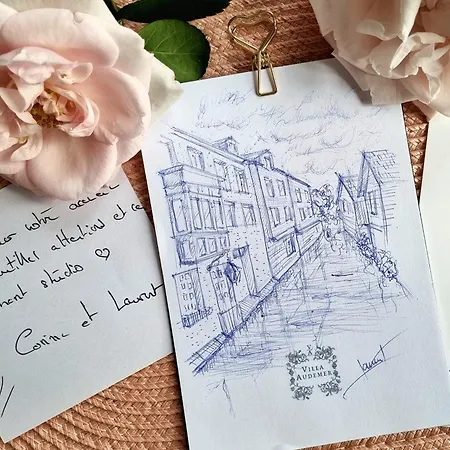 votre accueil
attentions et ce
studio ♡
Corine et Laurent
VILLA
AUDEMER
Laurent